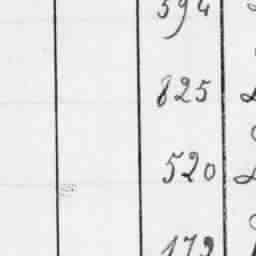 594
825
520
172